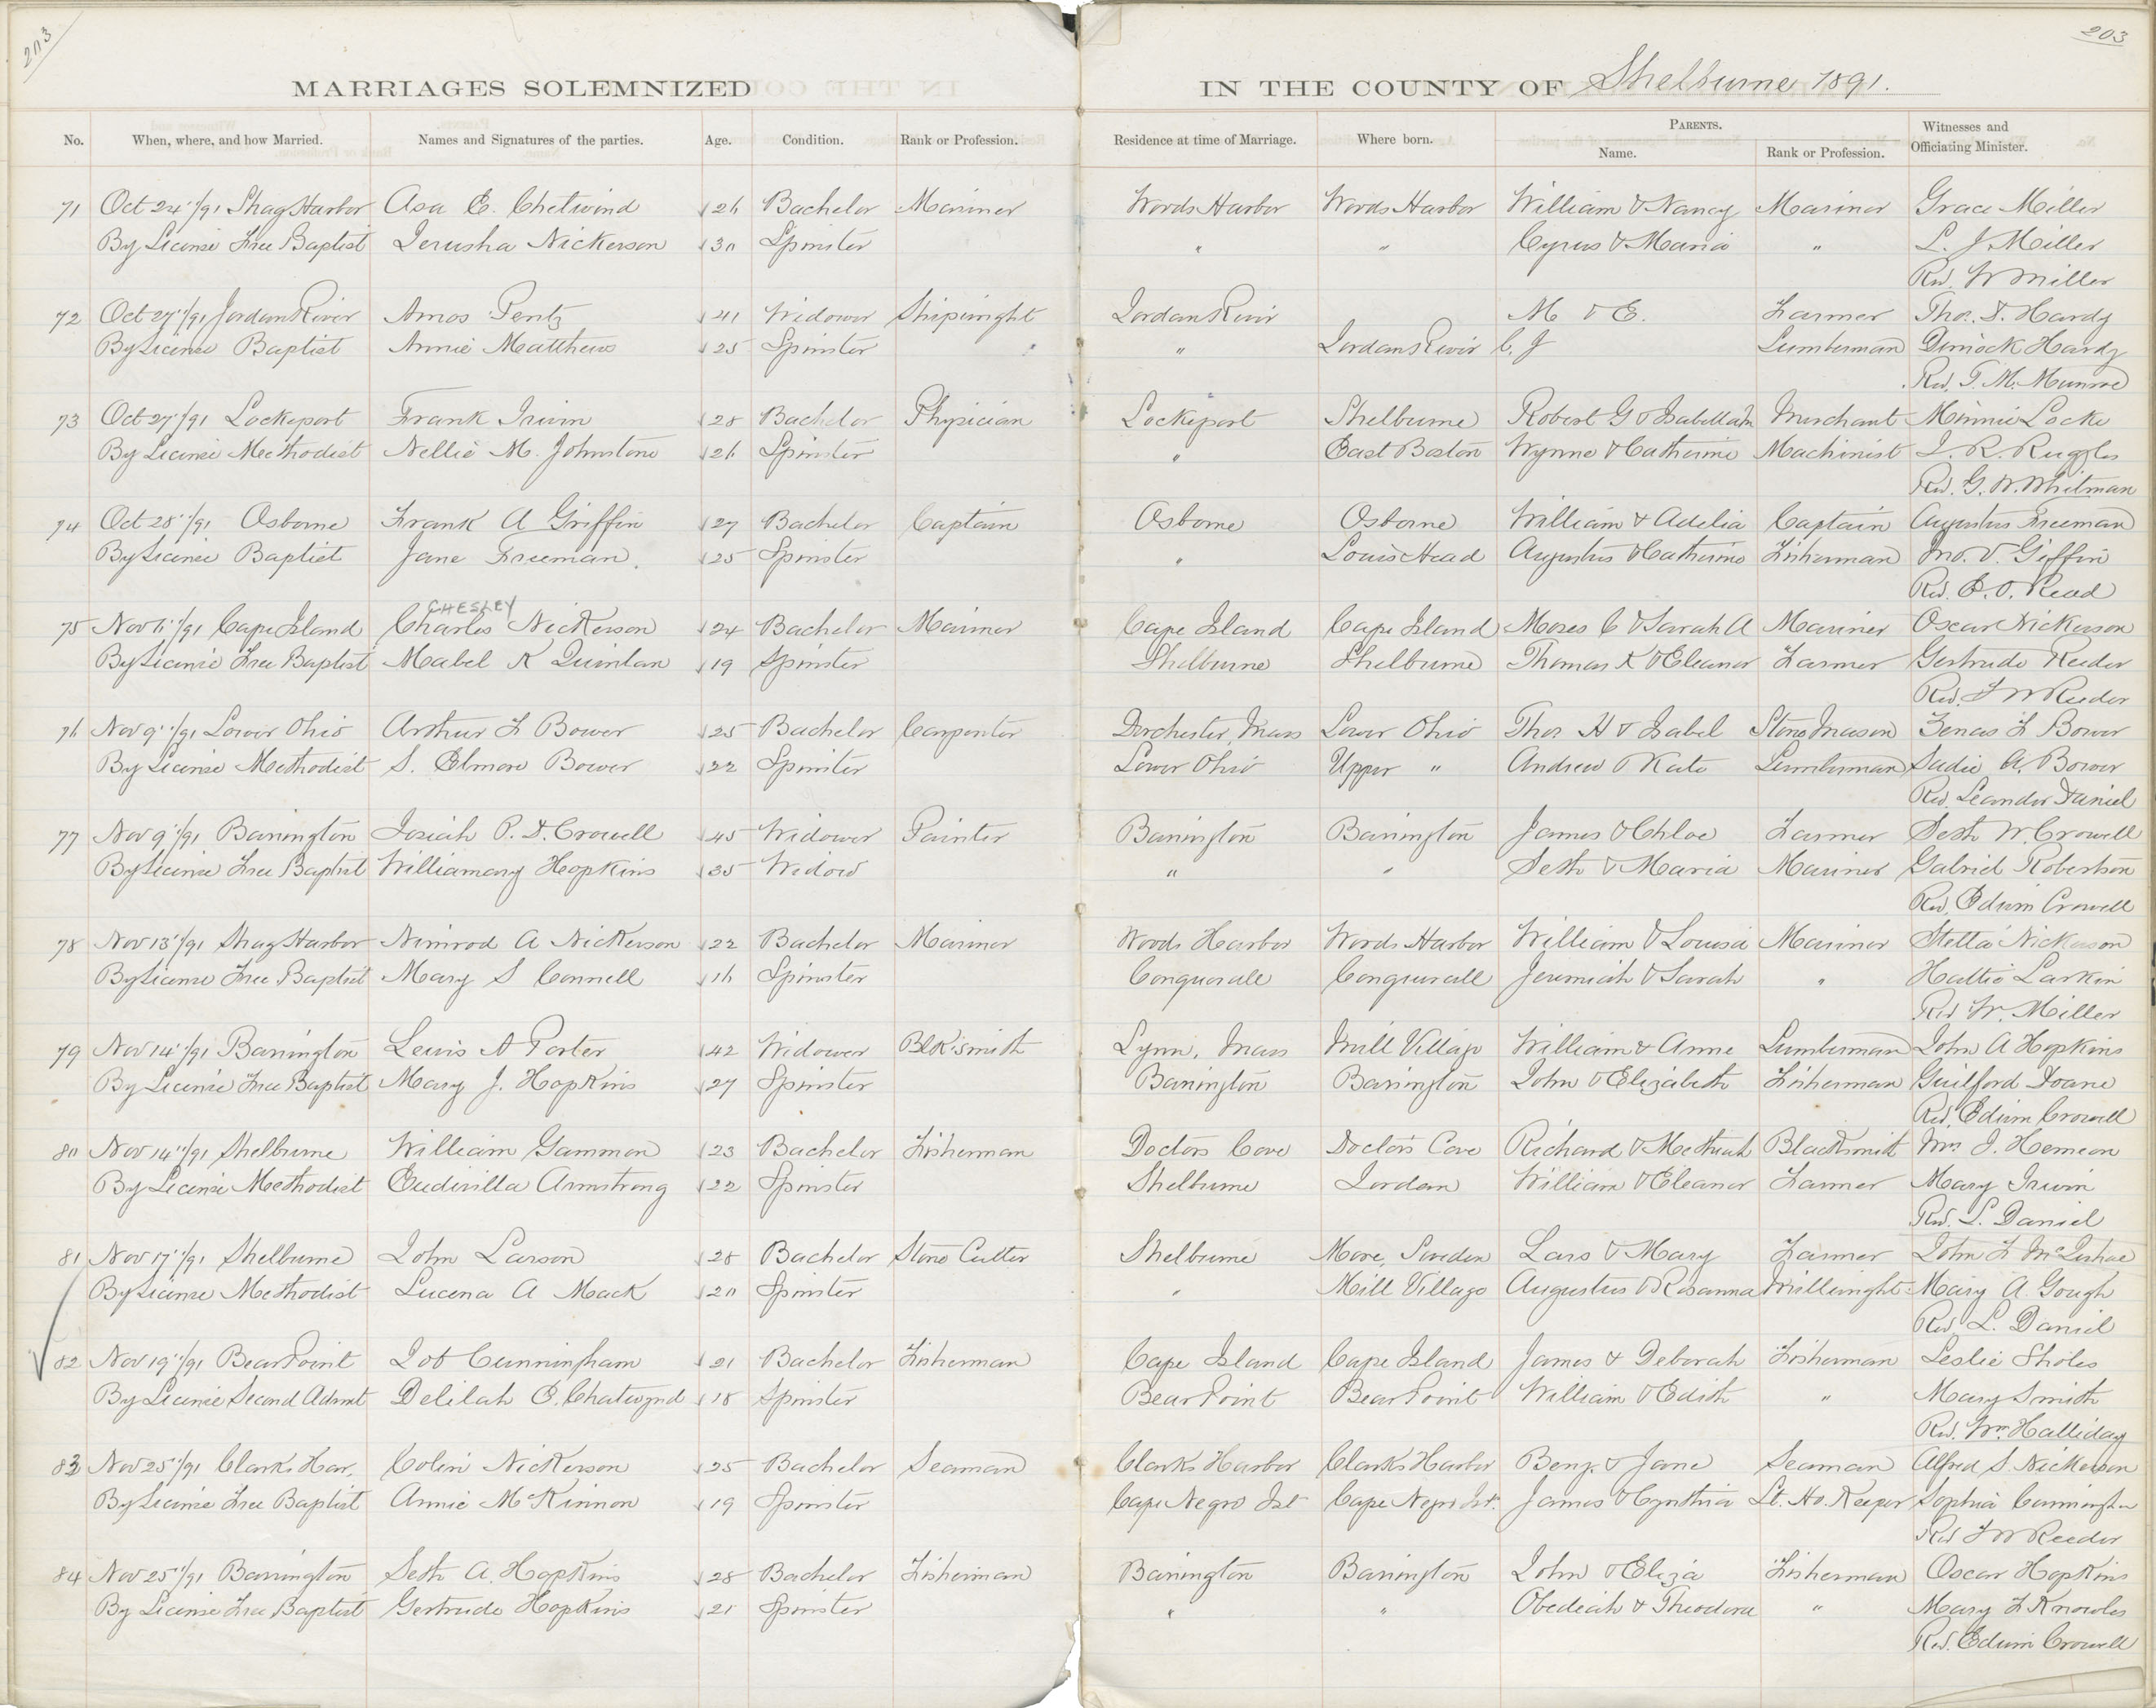 203
203
MARRIAGES SOLEMNIZED IN THE COUNTY OF Shelburne 1891.
No. When, where, and how Married. Names and Signatures of the parties. Age. Condition. Rank or Profession. Residence at time of Marriage. Where born. PARENTS. Name. Rank or Profession. Witnesses and Officiating Minister.
71 Oct 24"/91 Shag Harbor Asa E. Chetwind 26 Bachelor Mariner Woods Harbor Woods Harbor William & Nancy Mariner Grace Miller
By License Free Baptist Jerusha Nickerson 30 Spinster " " Cyrus & Maria " L. J. Miller
Rev. W Miller
72 Oct 27"/91 Jordan River Amos Pentz 41 Widower Shipwright Jordan River M & E. Farmer Thos. D. Hardy
By License Baptist Annie Matthews 25 Spinster " Jordan River C. J Lumberman Dimock Hardy
Rev. T. M. Munro
73 Oct 27"/91 Lockeport Frank Irwin 28 Bachelor Physician Lockeport Shelburne Robert G & Isabella M Merchant Minnie Locke
By License Methodist Nellie M. Johnstone 26 Spinster " East Boston Wynne & Catherine Machinist J. R. Ruggles
Rev. G. W. Whitman
74 Oct 28"/91 Osborne Frank A Griffin 27 Bachelor Captain Osborne Osborne William & Adelia Captain Augustus Freeman
By License Baptist Jane Freeman. 25 Spinster " Louis Head Augustus & Catherine Fisherman Jno. V. Giffin
Rev. E. O. Read
CHESLEY
75 Nov 6"/91 Cape Island Charles Nickerson 24 Bachelor Mariner Cape Island Cape Island Moses C & Sarah A Mariner Oscar Nickerson
By License Free Baptist Mabel K Quinlan 19 Spinster Shelburne Shelburne Thomas K & Eleanor Farmer Gertrude Reeder
Rev. F W Reeder
76 Nov 9"/91 Lower Ohio Arthur F Bower 25 Bachelor Carpenter Dorchester, Mass Lower Ohio Thos H & Isabel Stone Mason Zenas F Bower
By License Methodist S. Elmore Bower 22 Spinster Lower Ohio Upper " Andrew & Kate Lumberman Sadie A. Bower
Rev. Leander Daniel
77 Nov 9"/91 Barrington Josiah P. D. Crowell 45 Widower Painter Barrington Barrington James & Chloe Farmer Seth W. Crowell
By License Free Baptist Williamary Hopkins 35 Widow " " Seth & Maria Mariner Gabriel Robertson
Rev. Edwin Crowell
78 Nov 13"/91 Shag Harbor Nimrod A Nickerson 22 Bachelor Mariner Woods Harbor Woods Harbor William & Louisa Mariner Stella Nickerson
By License Free Baptist Mary S Connell 16 Spinster Conquerall Conquerall Jeremiah & Sarah " Hattie Larkin
Rev W. Miller
79 Nov 14"/91 Barrington Lewis A Porter 42 Widower Blk.smith Lynn, Mass Mill Village William & Anne Lumberman John A Hopkins
By License Free Baptist Mary J. Hopkins 27 Spinster Barrington Barrington John & Elizabeth Fisherman Guilford Doane
Rev. Edwin Crowell
80 Nov 14"/91 Shelburne William Gammon 23 Bachelor Fisherman Doctors Cove Doctors Cove Richard & Blacksmith Wm J. Hemeon
By License Methodist Armstrong 22 Spinster Shelburne Jordan William & Eleanor Farmer Mary Irwin
Rev. L. Daniel
81 Nov 17"/91 Shelburne John Larson 28 Bachelor Stone Cutter Shelburne More, Sweden Lars & Mary Farmer John F
By License Methodist Lucena A Mack 20 Spinster " Mill Village Augustus & Rosanna Millwright Mary A. Gough
Rev. L. Daniel
82 Nov 19"/91 Bear Point Job Cunningham 21 Bachelor Fisherman Cape Island Cape Island James & Deborah Fisherman Leslie Sholes
By License Second Advent Delilah E. Chatwynd 18 Spinster Bear Point Bear Point William & Edith " Mary Smith
Rev. Wm. Halliday
83 Nov 25"/91 Clarks Har. Colin Nickerson 25 Bachelor Seaman Clarks Harbor Clarks Harbor Benj. & Jane Seaman Alfred S. Nickerson
By License Free Baptist Annie McKinnon 19 Spinster Cape Negro Isl Cape Negro Isl. James & Cynthia Lt. Ho. Keeper Sophia Cunningham
Rev F W Reeder
84 Nov 25"/91 Barrington Seth A. Hopkins 28 Bachelor Fisherman Barrington Barrington John & Eliza Fisherman Oscar Hopkins
By License Free Baptist Gertrude Hopkins 21 Spinster " " Obediah & Theodora " Mary F Knowles
Rev. Edwin Crowell